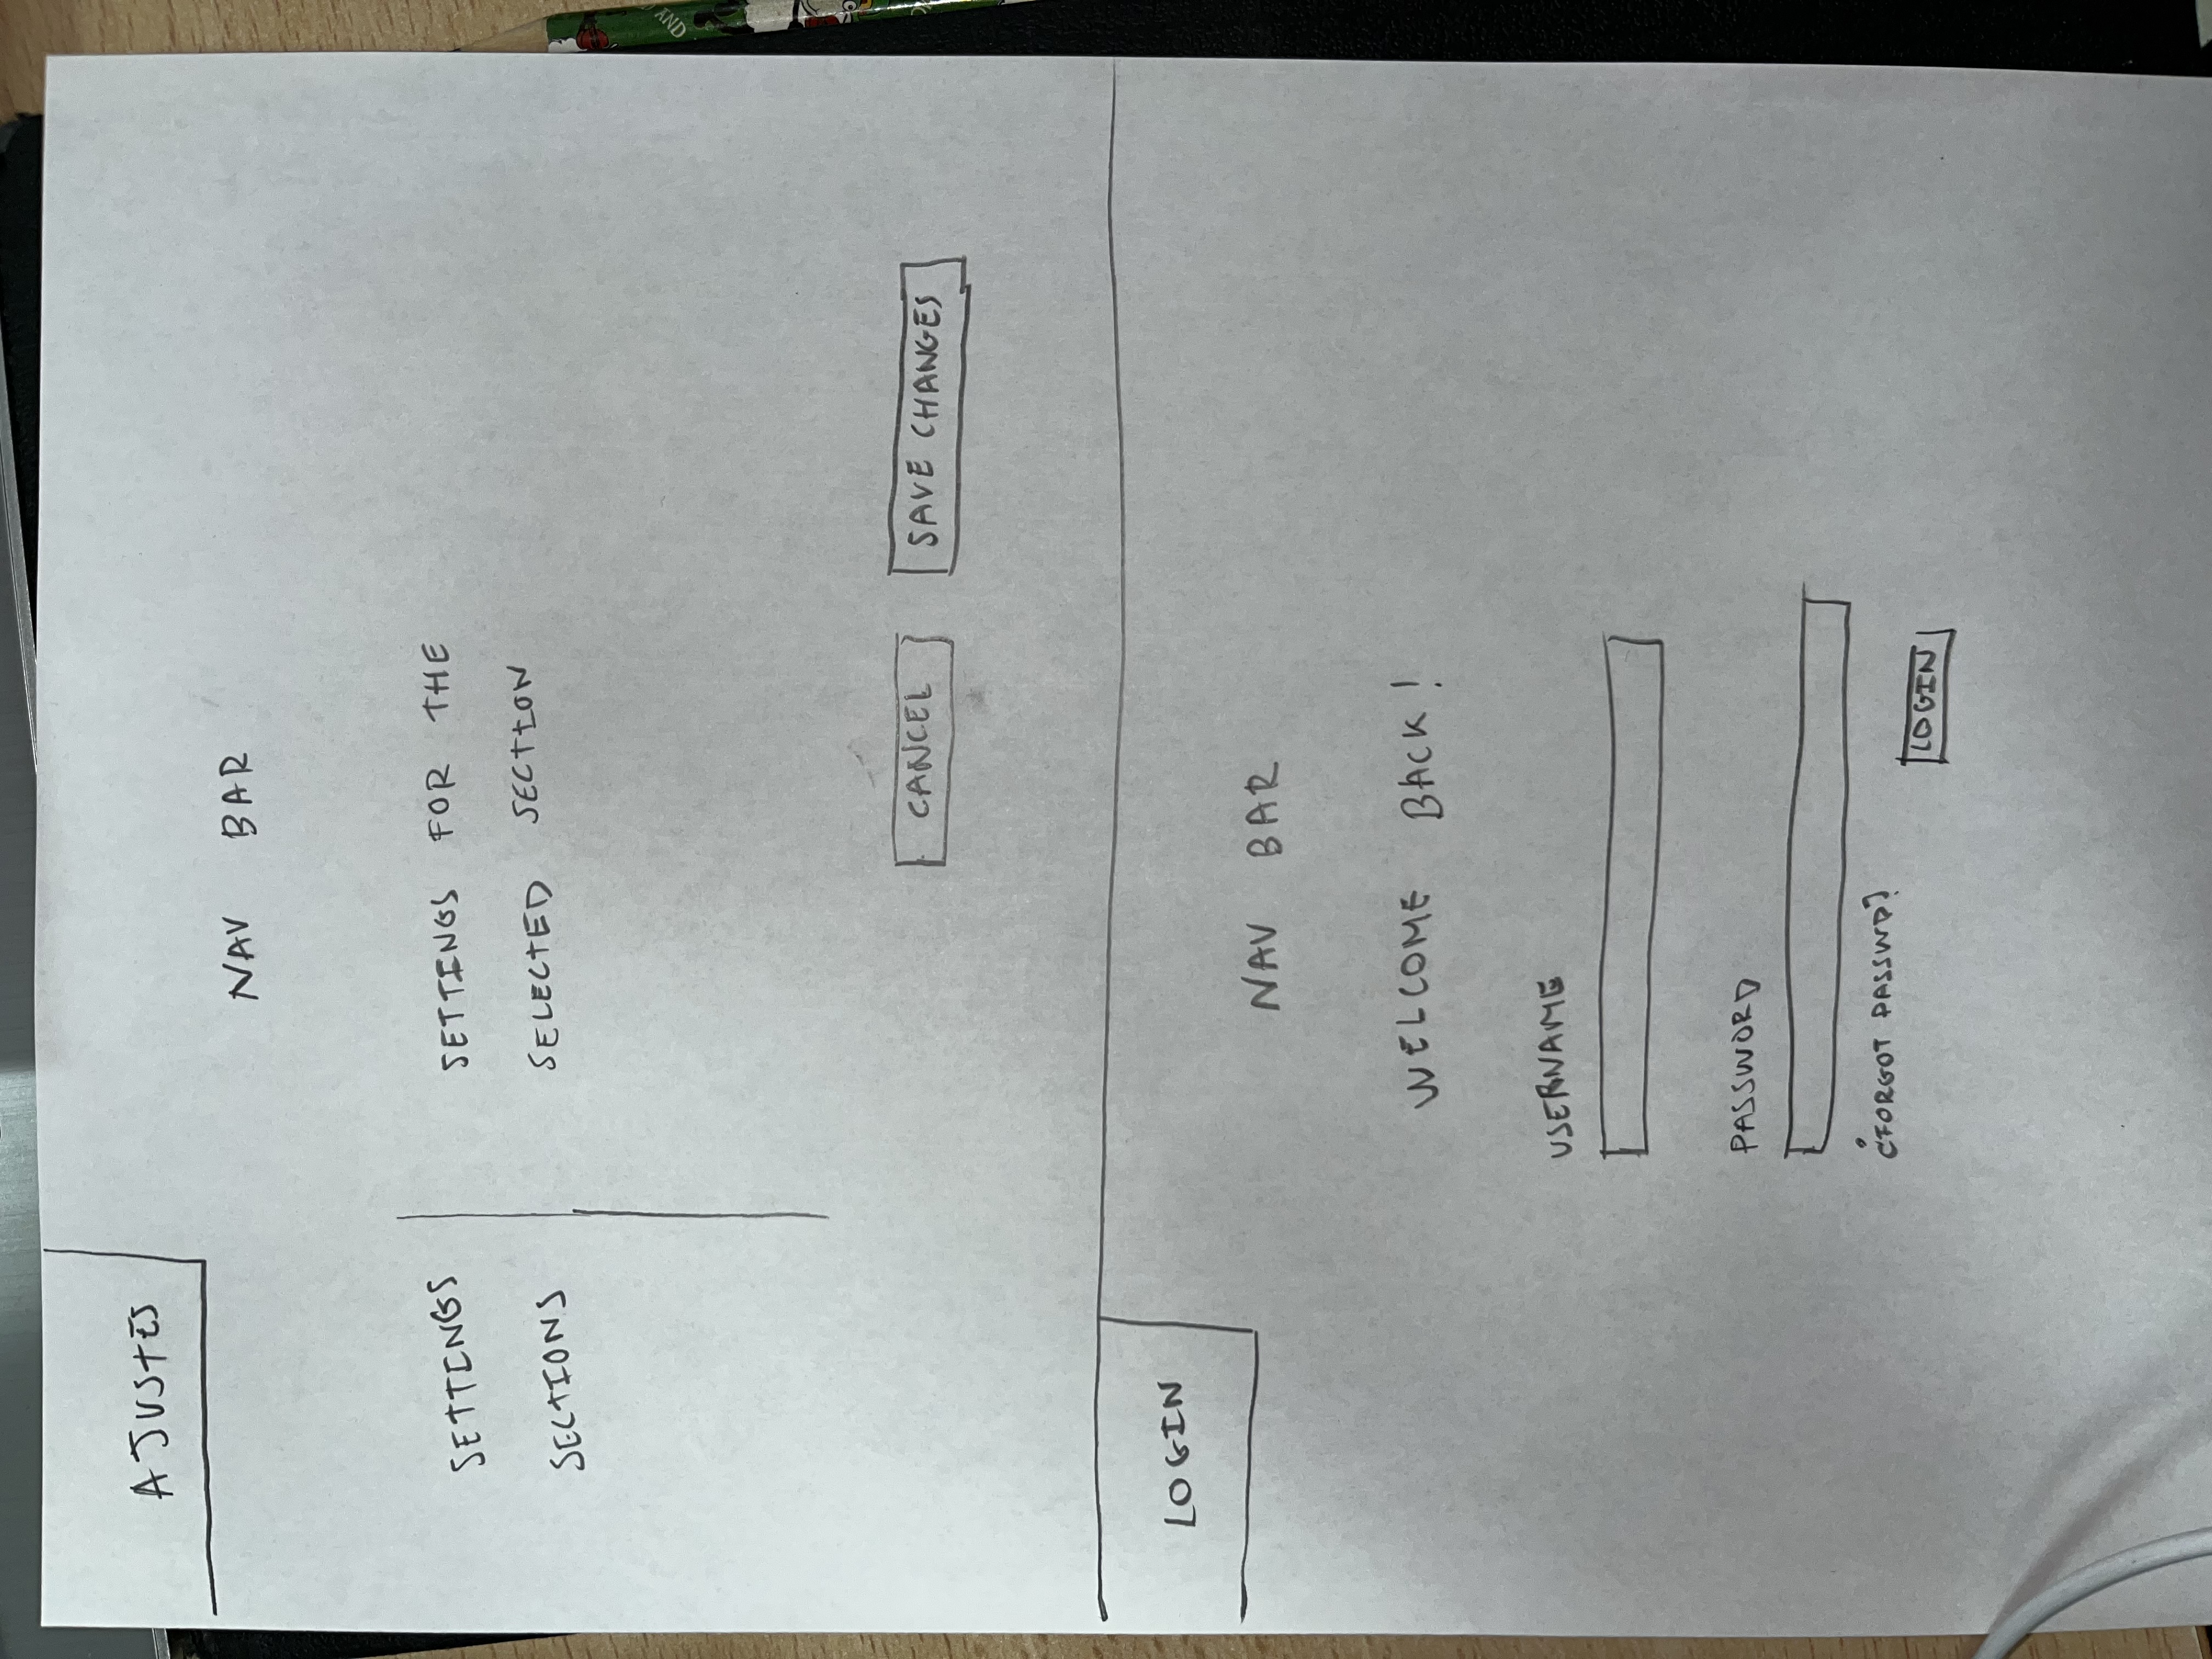 AJUSTES
NAV BAR
SETTINGS
SECTIONS
SETTINGS FOR THE
SELECTED SECTION
CANCEL
SAVE CHANGES
LOGIN
NAV BAR
WELCOME BACK!
USERNAME
PASSWORD
¿FORGOT PASSWD?
LOGIN
AND